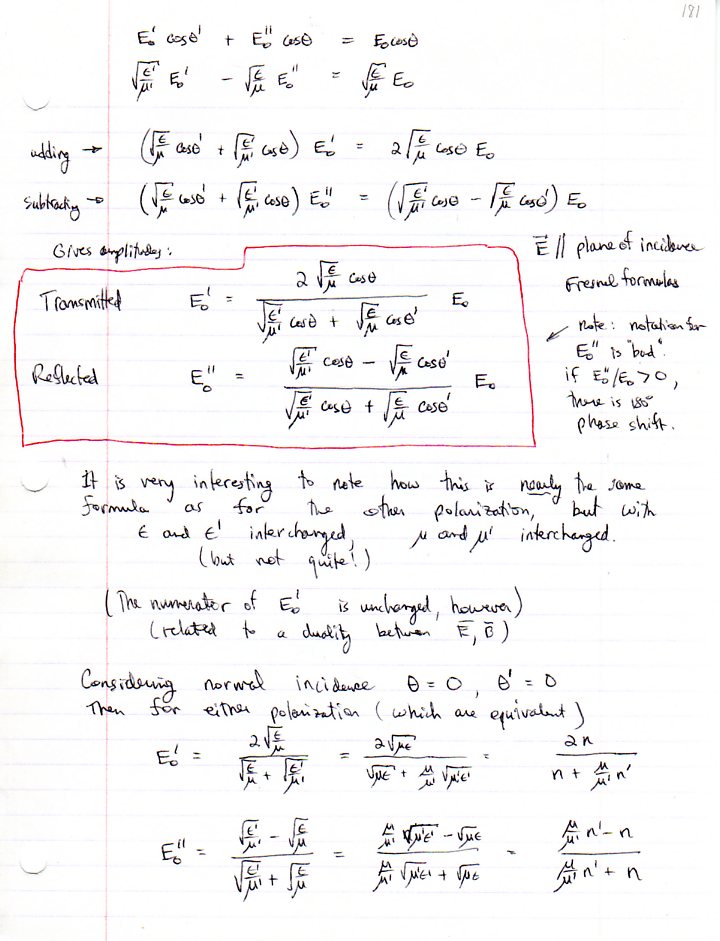 181
E₀' cosθ' + E₀'' cosθ = E₀ cosθ
√(ε'/μ') E₀' − √(ε/μ) E₀'' = √(ε/μ) E₀
adding → (√(ε/μ) cosθ' + √(ε'/μ') cosθ) E₀' = 2√(ε/μ) cosθ E₀
subtracting → (√(ε/μ) cosθ' + √(ε'/μ') cosθ) E₀'' = (√(ε'/μ') cosθ − √(ε/μ) cosθ') E₀
Gives amplitudes:
Transmitted E₀' = 2√(ε/μ) cosθ / (√(ε'/μ') cosθ + √(ε/μ) cosθ') E₀
Reflected E₀'' = (√(ε'/μ') cosθ − √(ε/μ) cosθ') / (√(ε'/μ') cosθ + √(ε/μ) cosθ') E₀
E⃗ // plane of incidence
Fresnel formulas
note: notation for
E₀'' is "bad".
if E₀''/E₀ > 0,
there is 180°
phase shift.
It is very interesting to note how this is nearly the same
formula as for the other polarization, but with
ε and ε' interchanged, μ and μ' interchanged.
(but not quite!)
(The numerator of E₀' is unchanged, however)
(related to a duality between E̅, B̅)
Considering normal incidence θ = 0, θ' = 0
Then for either polarization (which are equivalent)
E₀' = 2√(ε/μ) / (√(ε/μ) + √(ε'/μ')) = 2√(με) / (√(με) + μ/μ' √(μ'ε')) = 2n / (n + μ/μ' n')
E₀'' = (√(ε'/μ') − √(ε/μ)) / (√(ε'/μ') + √(ε/μ)) = (μ/μ' √(μ'ε') − √(με)) / (μ/μ' √(μ'ε') + √(με)) = (μ/μ' n' − n) / (μ/μ' n' + n)